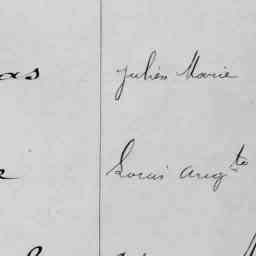 as Julien Marie
Louis Augte